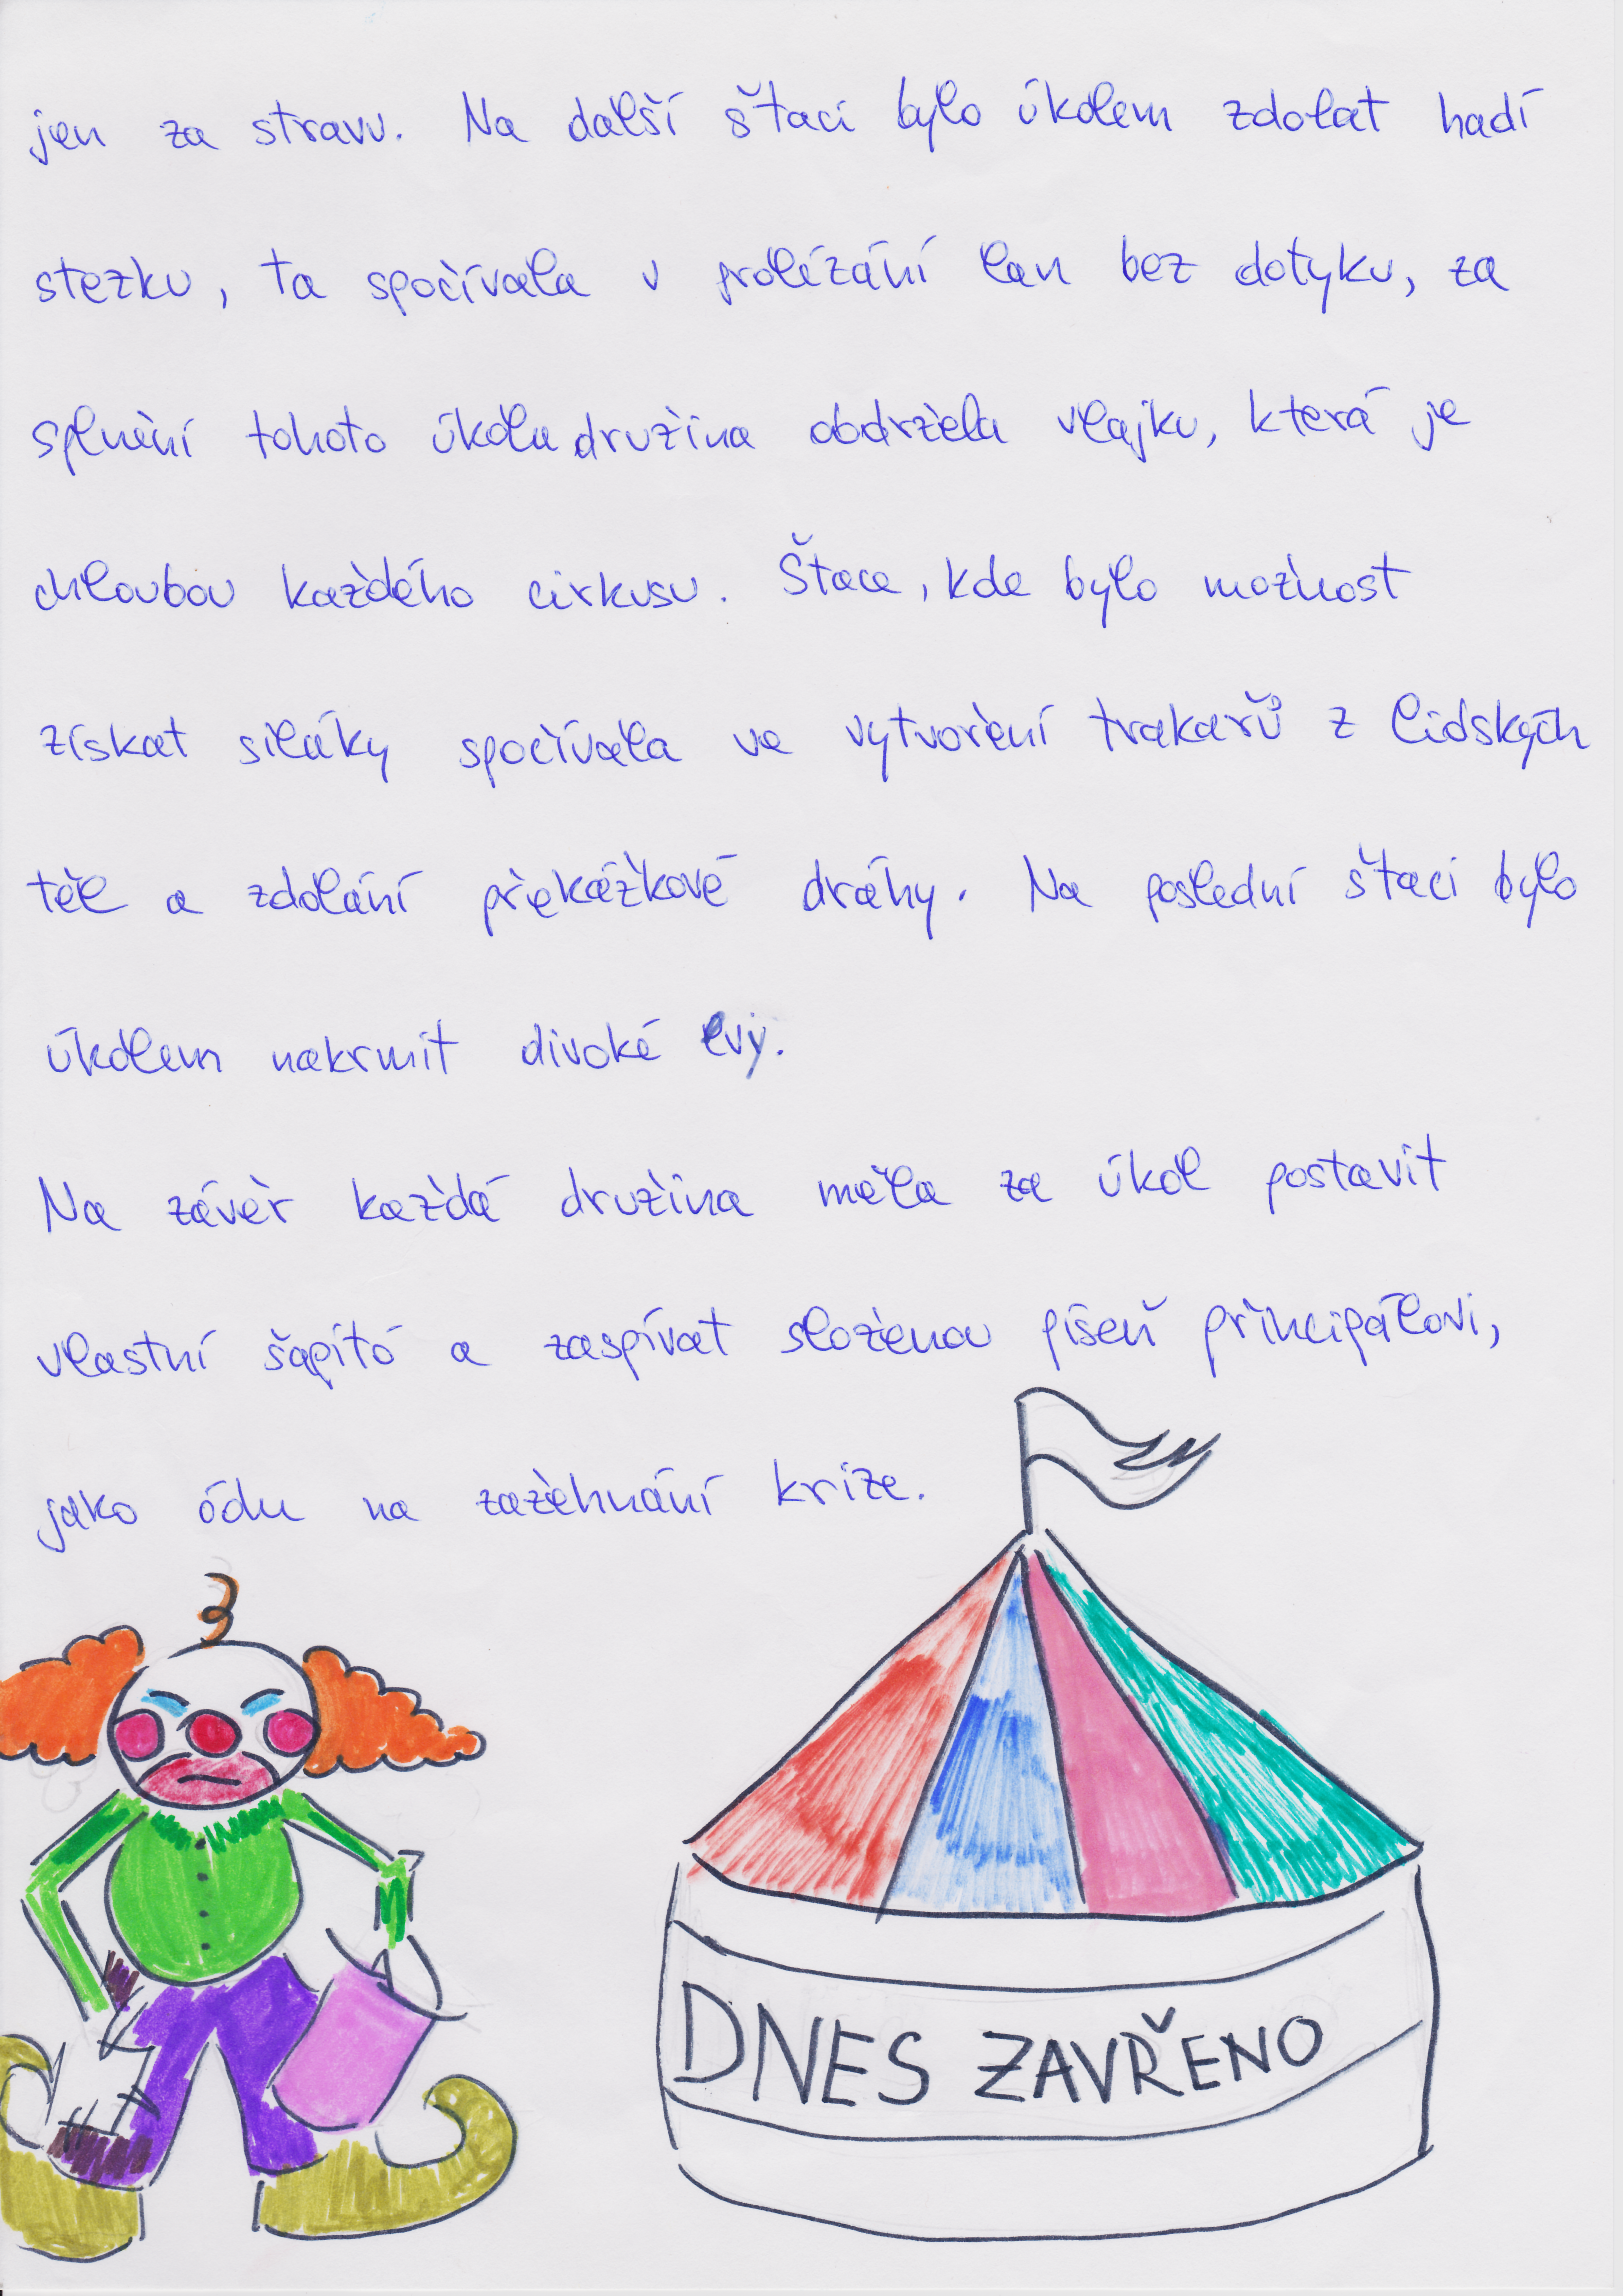 jen za stravu. Na další štaci bylo úkolem zdolat hadí
stezku, ta spočívala v prolézání lan bez dotyku, za
splnění tohoto úkolu družina obdržela vlajku, která je
chloubou každého cirkusu. Štace, kde bylo možnost
získat siláky spočívala ve vytvoření trakařů z lidských
těl a zdolání překážkové dráhy. Na poslední štaci bylo
úkolem nakrmit divoké lvy.
Na závěr každá družina měla za úkol postavit
vlastní šapitó a zaspívat složenou píseň principálovi,
jako ódu na zažehnání krize.
DNES ZAVŘENO